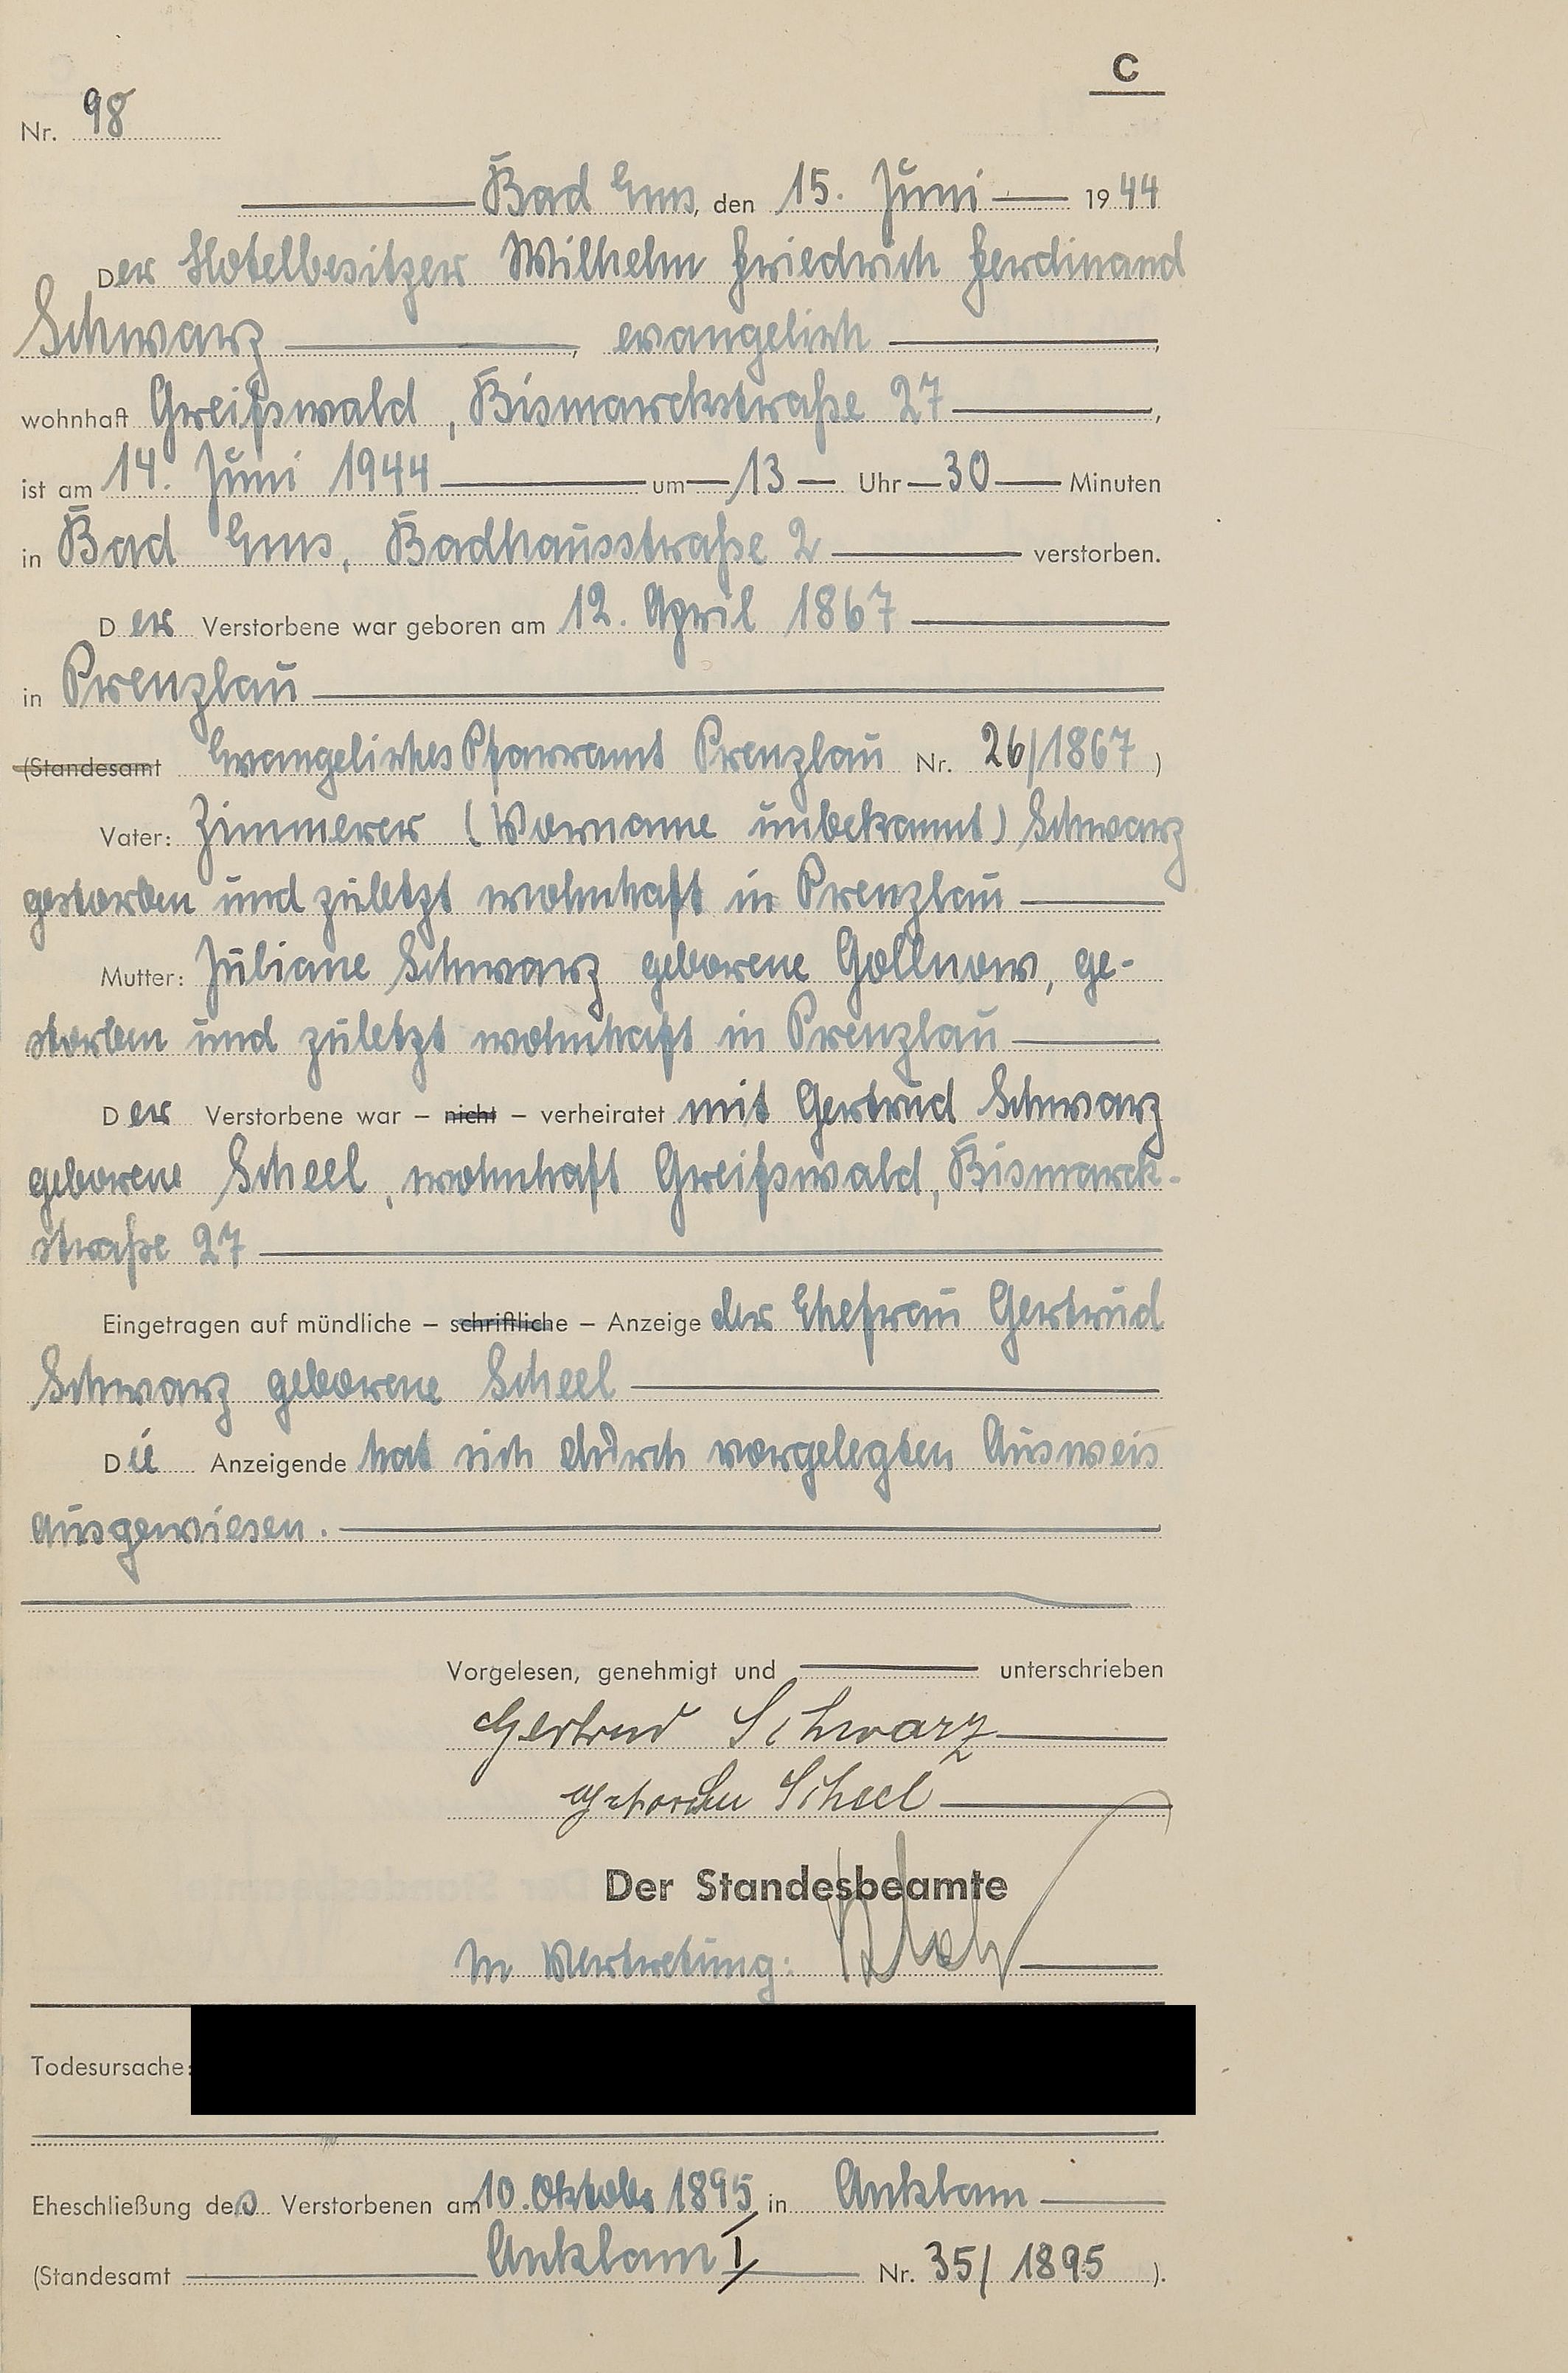 C
Nr. 98
Bad Ems, den 15. Juni 1944
Der Hotelbesitzer Wilhelm Friedrich Ferdinand
Schwarz, evangelisch,
wohnhaft Greifswald, Bismarckstraße 27,
ist am 14. Juni 1944 um 13 Uhr 30 Minuten
in Bad Ems, Badhausstraße 2 verstorben.
Der Verstorbene war geboren am 12. April 1867
in Prenzlau
(Standesamt Evangelisches Pfarramt Prenzlau Nr. 26/1867)
Vater: Zimmerer (Vorname unbekannt) Schwarz
gestorben und zuletzt wohnhaft in Prenzlau
Mutter: Juliane Schwarz geborene Gollnow, ge-
storben und zuletzt wohnhaft in Prenzlau
Der Verstorbene war – nicht – verheiratet mit Gertrud Schwarz
geborene Scheel, wohnhaft Greifswald, Bismarck-
straße 27
Eingetragen auf mündliche – schriftliche – Anzeige der Ehefrau Gertrud
Schwarz geborene Scheel
Die Anzeigende hat sich durch vorgelegten Ausweis
ausgewiesen.
Vorgelesen, genehmigt und unterschrieben
Gertrud Schwarz
Scheel
Der Standesbeamte
In Vertretung:
Todesursache:
Eheschließung des Verstorbenen am 10. Oktober 1895 in Anklam
(Standesamt Anklam I Nr. 35/1895).